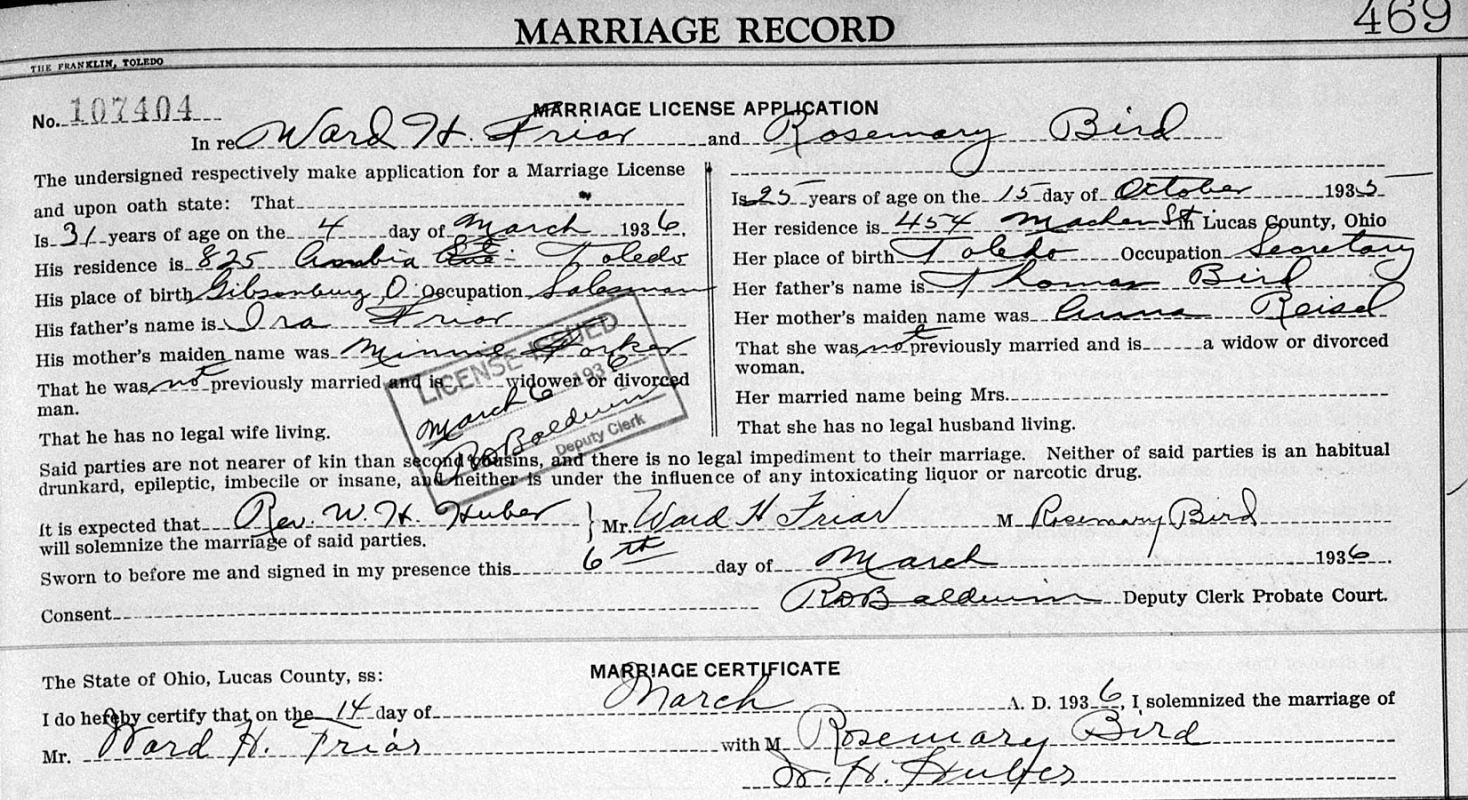 469
MARRIAGE RECORD
THE FRANKLIN, TOLEDO
No. 107404
MARRIAGE LICENSE APPLICATION
In re Ward H. Friar and Rosemary Bird
The undersigned respectively make application for a Marriage License
and upon oath state: That
Is 31 years of age on the 4 day of March 1936.
His residence is 825 St. Toledo
His place of birth Gibsonburg, O. Occupation Salesman
His father's name is Ira Friar
His mother's maiden name was Minnie
That he was not previously married and is widower or divorced
man.
That he has no legal wife living.
Is 25 years of age on the 15 day of October 1935
Her residence is 454 Machen St in Lucas County, Ohio
Her place of birth Toledo Occupation Secretary
Her father's name is Thomas Bird
Her mother's maiden name was Anna
That she was not previously married and is a widow or divorced
woman.
Her married name being Mrs.
That she has no legal husband living.
LICENSE ISSUED
March 6 1936
R O Baldwin
Deputy Clerk
Said parties are not nearer of kin than second cousins, and there is no legal impediment to their marriage. Neither of said parties is an habitual
drunkard, epileptic, imbecile or insane, and neither is under the influence of any intoxicating liquor or narcotic drug.
It is expected that Rev. W. H. Huber } Mr. Ward H Friar M Rosemary Bird
will solemnize the marriage of said parties.
Sworn to before me and signed in my presence this 6th day of March 1936.
Consent R O Baldwin Deputy Clerk Probate Court.
MARRIAGE CERTIFICATE
The State of Ohio, Lucas County, ss:
I do hereby certify that on the 14 day of March A. D. 1936, I solemnized the marriage of
Mr. Ward H. Friar with M Rosemary Bird
W. H. Huber